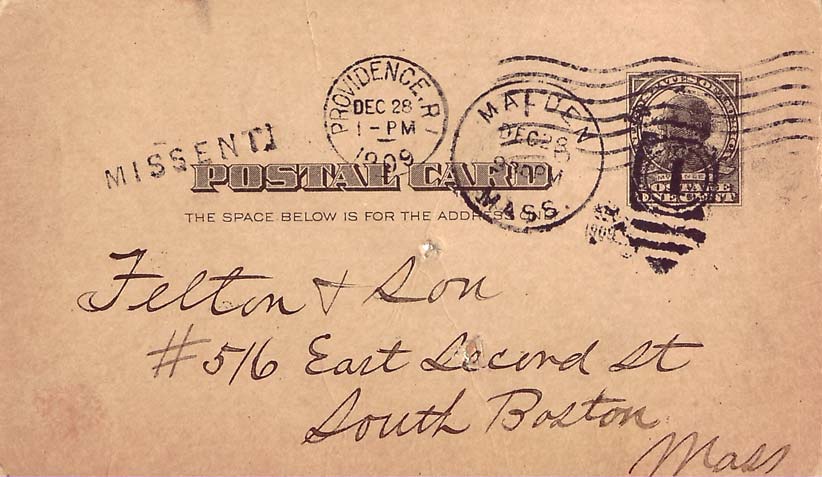 PROVIDENCE, R.I.
DEC 28
1-PM
1909
MALDEN
DEC 28
MASS.
MISSENT
POSTAL CARD
THE SPACE BELOW IS FOR THE ADDRESS ONLY
1
POSTAGE
ONE CENT
1909
Felton & Son
#516 East Second St
South Boston
Mass